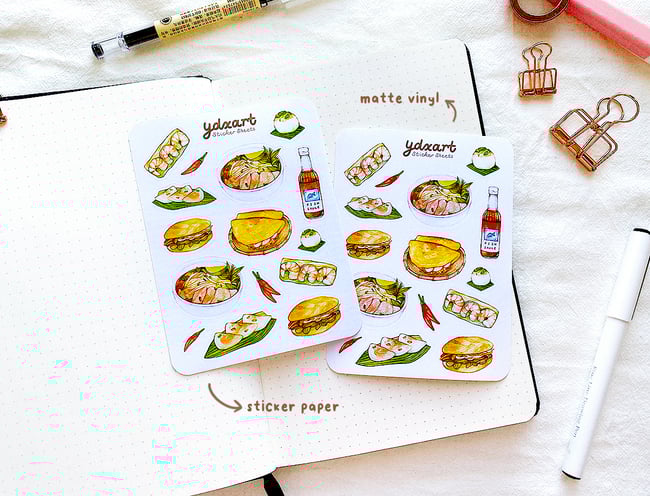 matte vinyl
ydxart
Sticker Sheets
ydxart
Sticker Sheets
FISH
SAUCE
FISH
SAUCE
sticker paper